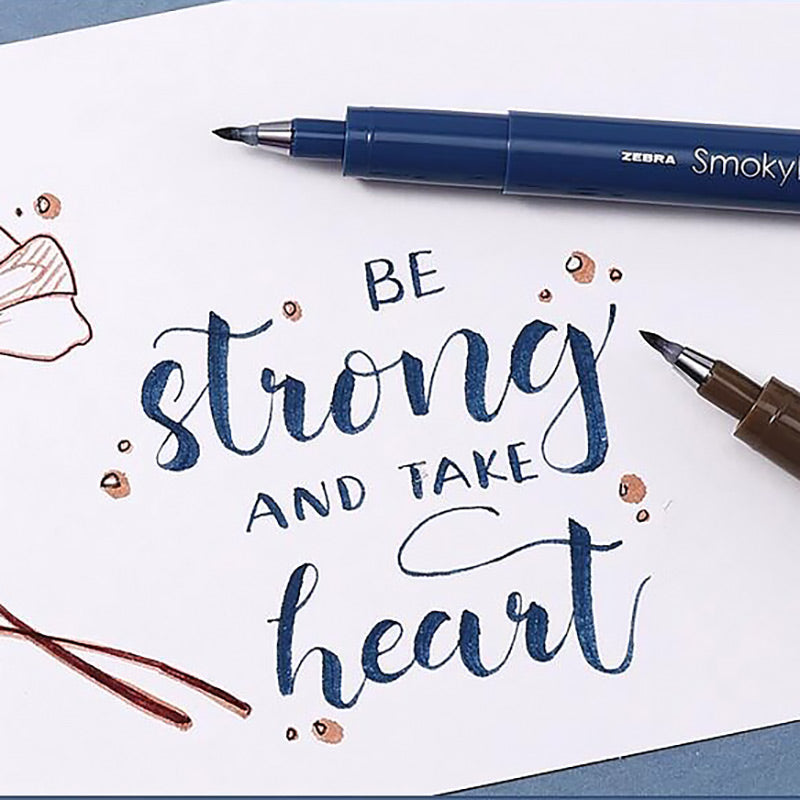 ZEBRA Smoky
BE
strong
AND TAKE
heart